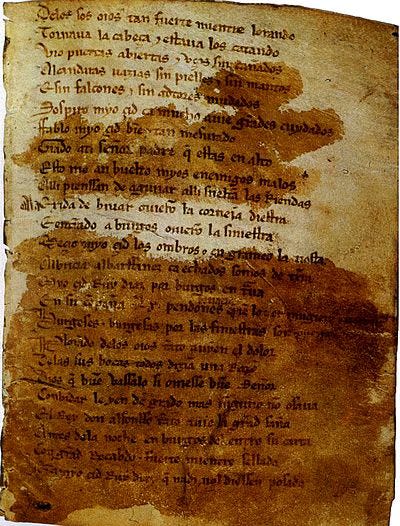 Delos sos oios tan fuerte mientre lorando
Tornaua la cabeça ⁊ estaua los catando
Vio puertas abiertas ⁊ vços sin cañados
Alcandaras uazias sin pielles ⁊ sin mantos
E sin falcones ⁊ sin adtores mudados
Sospiro myo çid ca mucho auie grãdes cuydados
Fablo myo çid biẽ ⁊ tan mesurado
Grado ati señor padre q̃ estas en alto
Esto me an buelto myos enemigos malos
Alli pienssan de aguijar alli sueltã las Riendas
Ala exida de biuar ouierõ la corneja diestra
E entrãdo a burgos ouierõ la siniestra
Meçio myo çid los ombros ⁊ en grameo la tiesta
Albricia albarffanez ca echados somos de trã
Myo çid Ruy diaz por burgos en traua
En su cõpaña Lx pendones
Burgeses ⁊ burgesas por las finiestras son
Plorando delos oios tãto auien el dolor
Delas sus bocas todos dizian una Razõ
Dios q̃ buẽ vassalo si ouiesse buẽ Señor
Conbidar le yen de grado mas niguno nõ osaua
El Rey don alfonsso tãto auie la grãd saña
Antes dela noche en burgos del entro su carta
Cõ grãd Recabdo ⁊ fuerte mientre sellada
myo çid Ruy diaz q̃ nadi nol diessen posada